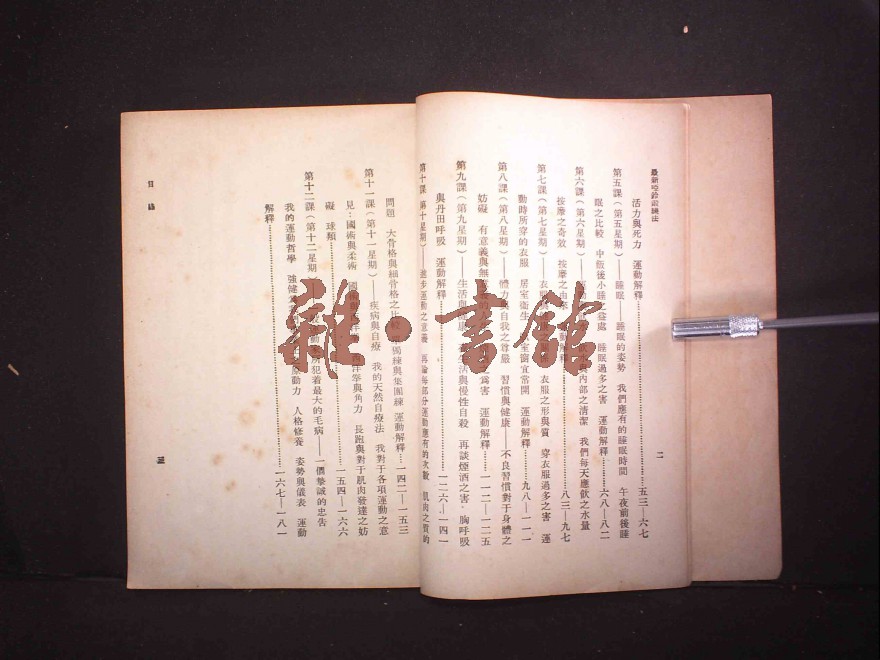 最新啞鈴訓練法
二
活力與死力 運動解釋……五三—六七
第五課(第五星期)——睡眠——睡眠的姿勢 我們應有的睡眠時間 午夜前後睡
眠之比較 中飯後小睡之益處 睡眠過多之害 運動解釋……六八—八二
第六課(第六星期)——水與內部之清潔 我們每天應飲之水量
按摩之奇效 按摩之由來 運動解釋……八三—九七
第七課(第七星期)——衣服 衣服之形與質 穿衣服過多之害 運
動時所穿的衣服 居室衛生 室窗宜常開 運動解釋……九八—一一一
第八課(第八星期)——體力 自我之尊嚴 習慣與健康——不良習慣對于身體之
妨礙 有意義與無 之為害 運動解釋……一一二—一二五
第九課(第九星期)——生活與 生活與慢性自殺 再談煙酒之害 胸呼吸
與丹田呼吸 運動解釋……一二六—一四一
第十課(第十星期)——進步運動之意義 再論每部分運動應有的次數 肌肉之質的
問題 大骨格與細骨格之比較 獨練與集團練 運動解釋……一四二—一五三
第十一課(第十一星期)——疾病與自療 我的天然自療法 我對于各項運動之意
見:國術與柔術 國術 西洋拳與角力 長跑與對于肌肉發達之妨
礙 球類……一五四—一六六
第十二課(第十二星期)—— 所犯着最大的毛病——一個摯誠的忠告
我的運動哲學 強健 原動力 人格修養 姿勢與儀表 運動
解釋……一六七—一八一
目錄
三
雜·書館